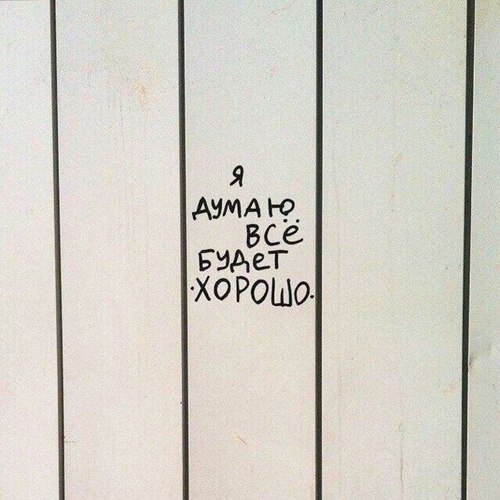 Я
ДУМАЮ
ВСЁ
БУДЕТ
·ХОРОШО·